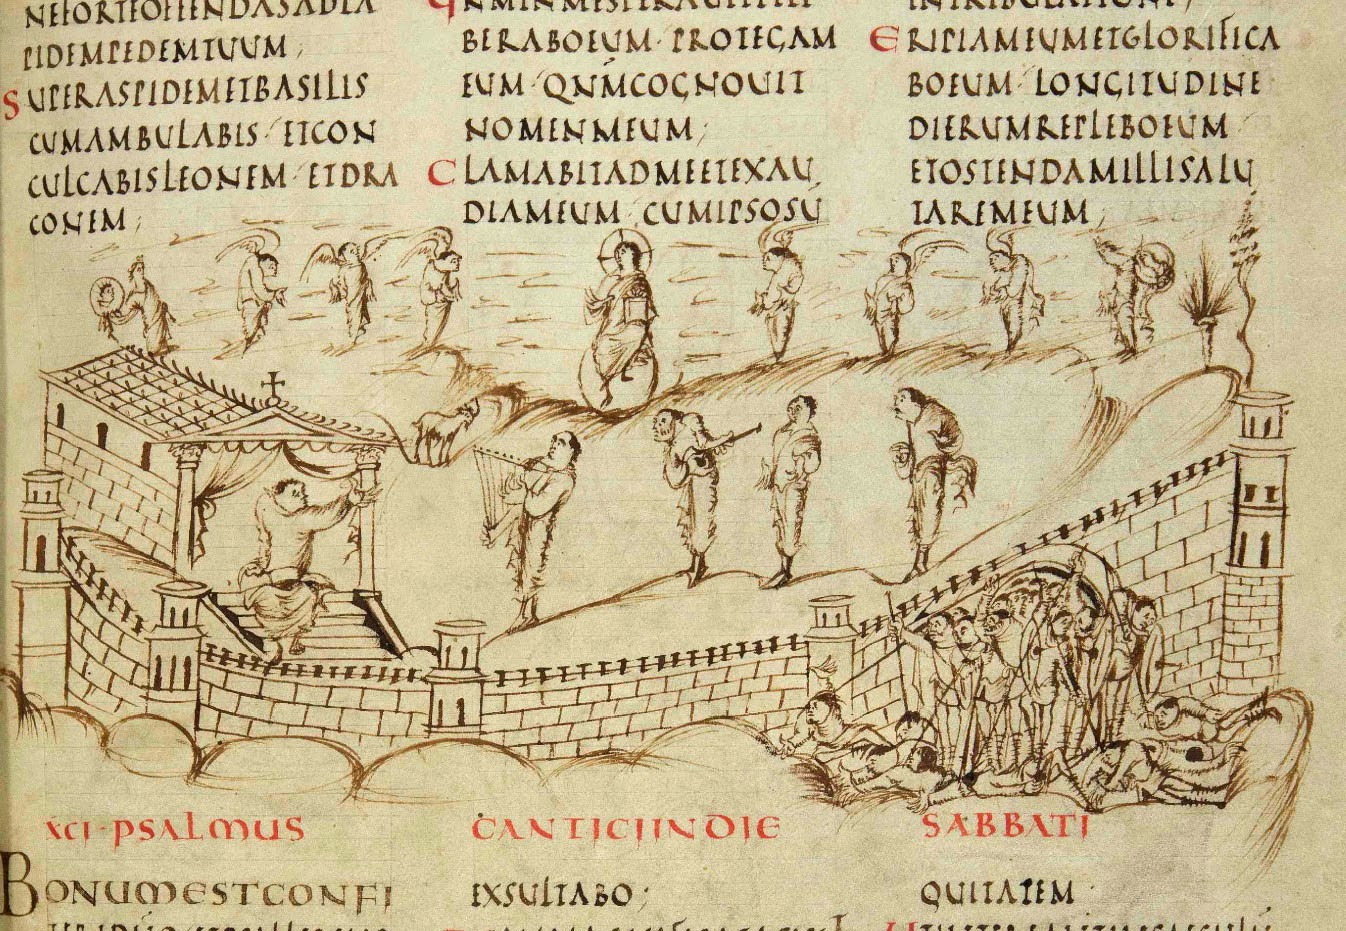 NEFORTEOFFENDASADLA
PIDEMPEDEMTUUM;
SUPERASPIDEMETBASILIS
CUMAMBULABIS· ETCON
CULCABISLEONEM· ETDRA
CONEM;
BERABOEUM· PROTEGAM
EUM· QNMCOGNOUIT
NOMENMEUM;
CLAMABITADMEETEXAU
DIAMEUM· CUMIPSOSU
INTRIBULATIONE;
ERIPIAMEUMETGLORIFICA
BOEUM· LONGITUDINE
DIERUMREPLEBOEUM·
ETOSTENDAMILLISALU
TAREMEUM;
XCI·PSALMUS CANTICIINDIE SABBATI
BONUMESTCONFI
EXSULTABO;
QUITATEM·